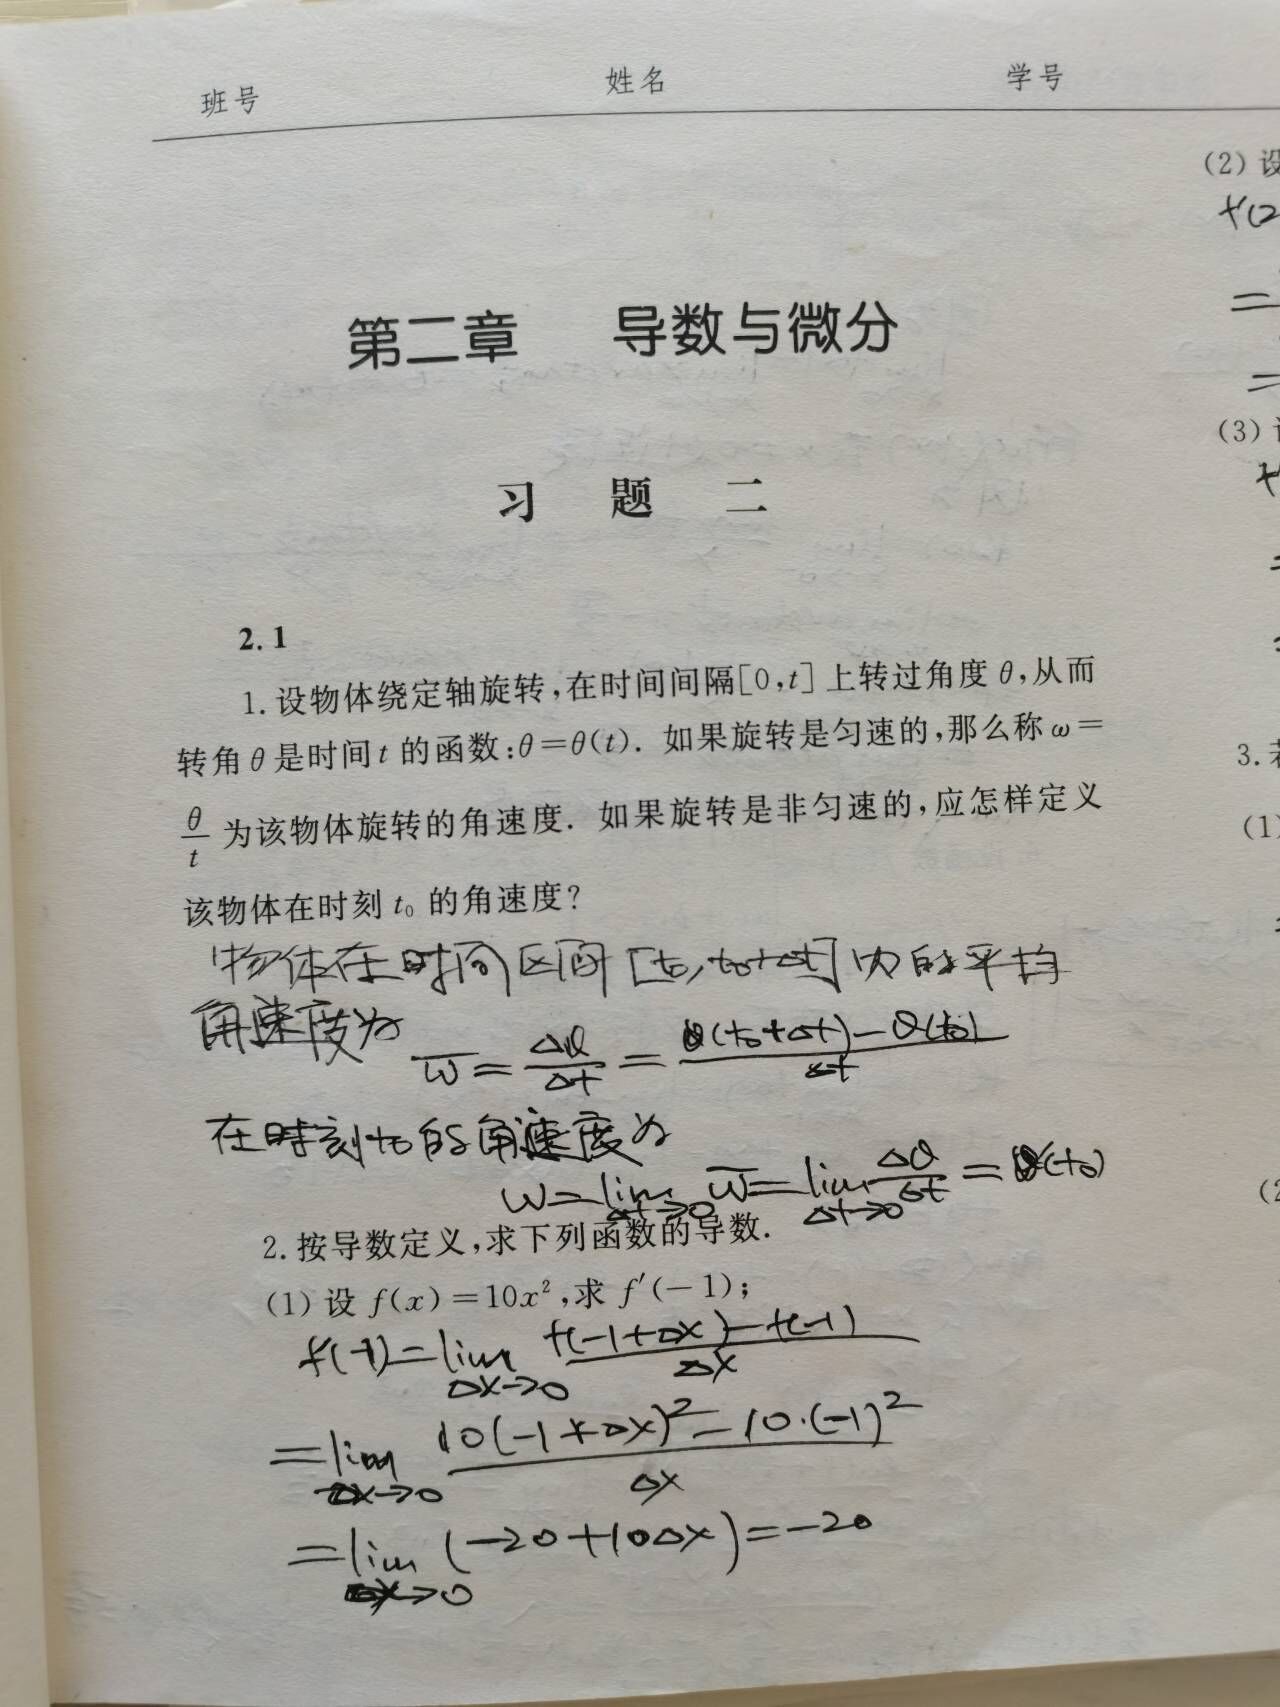 班号 姓名 学号
第二章 导数与微分
习 题 二
2.1
1. 设物体绕定轴旋转,在时间间隔[0,t]上转过角度 θ,从而
转角 θ 是时间 t 的函数:θ=θ(t). 如果旋转是匀速的,那么称 ω=
θ/t 为该物体旋转的角速度. 如果旋转是非匀速的,应怎样定义
该物体在时刻 t₀ 的角速度?
物体在时间区间 [t₀, t₀+Δt] 内的平均
角速度为
ω̄ = Δθ/Δt = (θ(t₀+Δt)-θ(t₀))/Δt
在时刻t₀的角速度为
ω = lim Δt→0 ω̄ = lim Δt→0 Δθ/Δt = θ'(t₀)
2. 按导数定义,求下列函数的导数.
(1) 设 f(x)=10x²,求 f′(-1);
f'(-1) = lim Δx→0 (f(-1+Δx)-f(-1))/Δx
= lim Δx→0 (10(-1+Δx)²-10·(-1)²)/Δx
= lim Δx→0 (-20+10Δx) = -20
(2) 设
f'(2
=
=
(3)
3. 若
(1)
(2